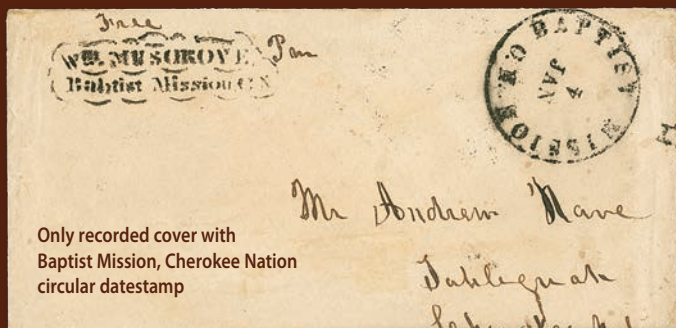 Free
WM. MUSGROVE, Pm
Baptist Mission C N
BAPTIST MISSION
JAN
4
Mr Andrew Nave
Tahlequah
Only recorded cover with
Baptist Mission, Cherokee Nation
circular datestamp